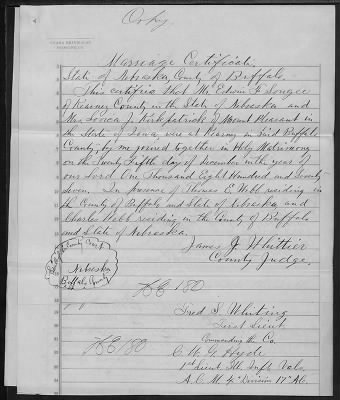 Copy
Marriage Certificate.
State of Nebraska, County of Buffalo.
This certifies that Mr Edwin F.
of Kearney County in the State of Nebraska and
Mrs J. Kirkpatrick of Mount Pleasant in
the State of Iowa, were at Kearney in said Buffalo
County, by me joined together in Holy Matrimony
on the Twenty Fifth day of December in the year of
our Lord One Thousand Eight Hundred and Seventy
Seven. In presence of Thomas E. Webb residing in
the County of Buffalo and State of Nebraska and
Charles Webb residing in the County of Buffalo
and State of Nebraska.
James J Whittier
County Judge.
County Court
Nebraska
Buffalo County
180
Fred S. Whiting
First Lieut
Commanding the Co.
180
C. W. G. Hyde
1st Lieut Ills Infty Vols
A.C.M. 4th Division 17th A.C.